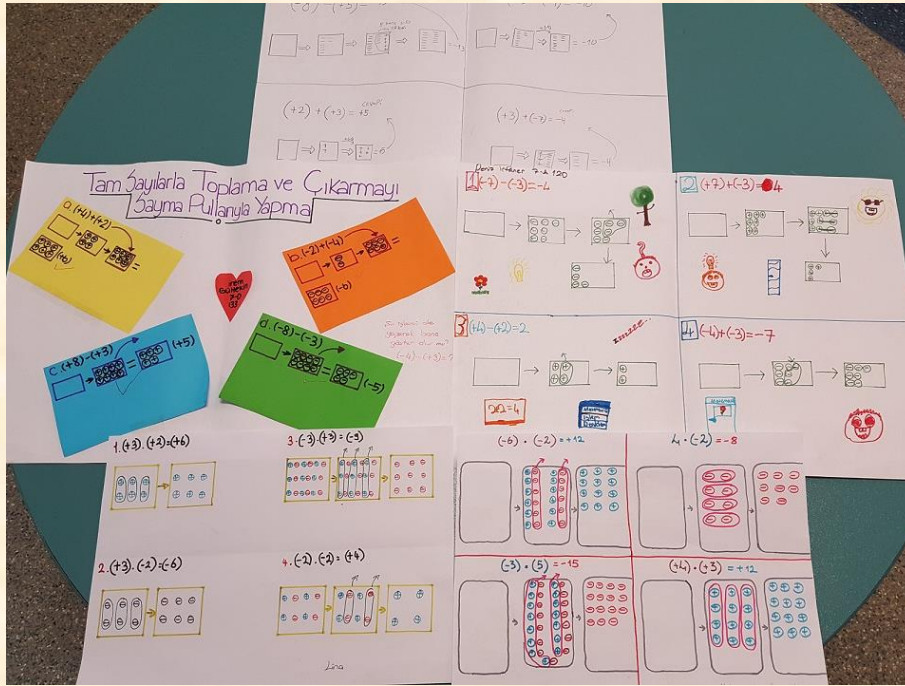 (-8) - (+3) =
= -10
(+2) + (+3) = +5
(+3) + (-7) = -4
= -4
Tam Sayılarla Toplama ve Çıkarmayı
Sayma Pullarıyla Yapma
a. (+4)+(+2)
=
(+6)
b. (-2)+(-4)
=
(-6)
c. (+8)-(+3)
=
(+5)
d. (-8)-(-3)
=
(-5)
7-D
7-A 120
1 (-7)-(-3)=-4
2 (+7)+(-3)=4
3 (+4)-(+2)=2
2x2=4
4 (-4)+(-3)=-7
1. (+3).(+2)=(+6)
2. (+3).(-2)=(-6)
3. (-3).(+3)=(-9)
4. (-2).(-2)=(+4)
Lina
(-6) . (-2) = +12
4 . (-2) = -8
(-3) . (5) = -15
(+4) . (+3) = +12